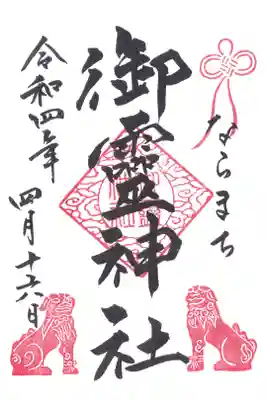 ならまち
御靈神社
令和四年
四月十六日